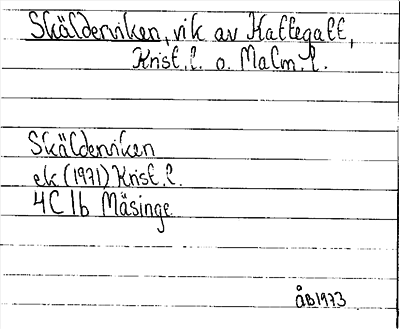 Skälderviken, vik av Kattegatt,
Krist.l. o. Malm.l.
Skälderviken
ek (1971) Krist.l.
4C 1b Mäsinge
ÅB1973